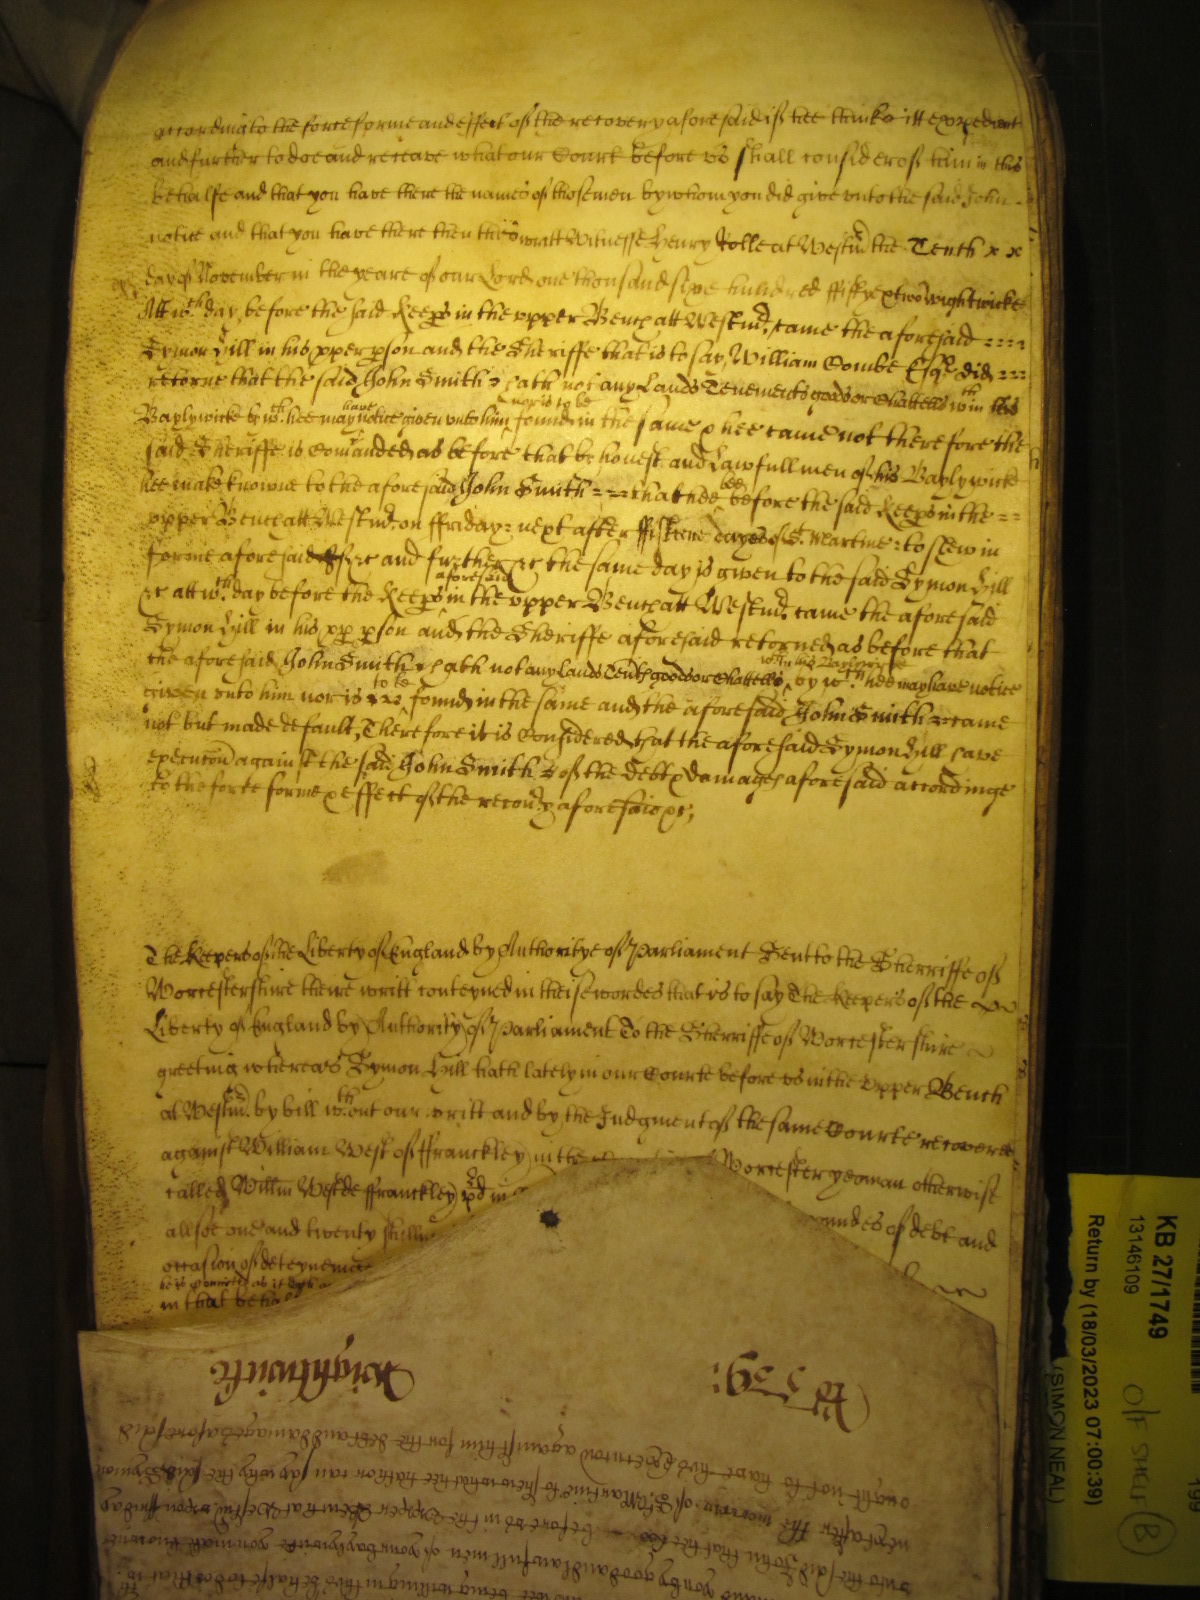 according to the force forme and effect of the recovery aforesaid if hee thinke itt expedient
and further to doe and receave what our Court before vs shall consider of him in this
behalfe and that you have there the names of those men by whom you did give vnto the said John
notice and that you have there then this writt Witnesse Henry Rolle at Westmr the Tenth x x
day of November in the yeare of our Lord one thousand sixe hundred ffifty & two Wightwicke
Att wch day, before the said Keeprs in the vpper Bench att Westmr, came the aforesaid
Symon Hill in his pper pson and the Sheriffe that is to say, William Combe Esqr did
retorne that the said John Smith hath not any Lands Tenements goods or Chattells wthin his
Baylywicke by wch hee may have notice given vnto him nor is to be found in the same & hee came not therefore the
said Sheriffe is Comanded as before that by honest and Lawfull men of his Baylywicke
hee make knowne to the aforesaid John Smith that hee bee before the said Keeprs in the
vpper Bench att Westmr on ffriday next after ffifteene dayes of St. Martine to shew in
forme aforesaid if &c and further &c the same day is given to the said Symon Hill
&c att wch day before the Keeprs aforesaid in the vpper Bench att Westmr came the aforesaid
Symon Hill in his pp pson and the Sheriffe aforesaid retorned as before that
the aforesaid John Smith hath not any lands Tenths goods or Chattells wthin his Baylywicke by wch hee may have notice
given vnto him nor is to be found in the same and the aforesaid John Smith came
not but made default, Therefore it is Considered that the aforesaid Symon Hill have
execucon against the said John Smith of the Debt & damages aforesaid accordinge
to the force forme & effect of the recovy aforesaid &c;
The Keepers of the Liberty of England by Authoritye of Parliament Sent to the Sherriffe of
Worcestershire theire writt conteyned in theise wordes that is to say The Keepers of the
Liberty of England by Authority of Parliament To the Sherriffe of Worcestershire
greeting whereas Symon Hill hath lately in our Courte before vs in the Vpper Bench
at Westmr by bill wthout our writt and by the Judgment of the same Courte recovered
against William West of ffranckley in the Worcester yeoman otherwise
called Willm West de ffranckley pd in
allsoe one and twenty shillin oundes of debt and
occasion of deteyneing
in that behalf
Wightwicke
Ro 559:
ought not to have his Execution against him for the debt and damages aforesaid
next after the morrow of St. Martine to shew what hee hath or can say why the said Symon
vnto the said John that hee bee before vs in the Vpper Bench at Westmr vpon ffriday
you by good and lawfull men of your baylywicke you make knowne
wee being willing in this behalfe to doe that wch
KB 27/1749
13146109
Return by (18/03/2023 07:00:39)
(SIMON NEAL)
O/F SHELF
B